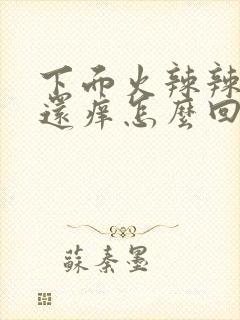 下面火辣辣
還痒怎麼回
蘇秦墨